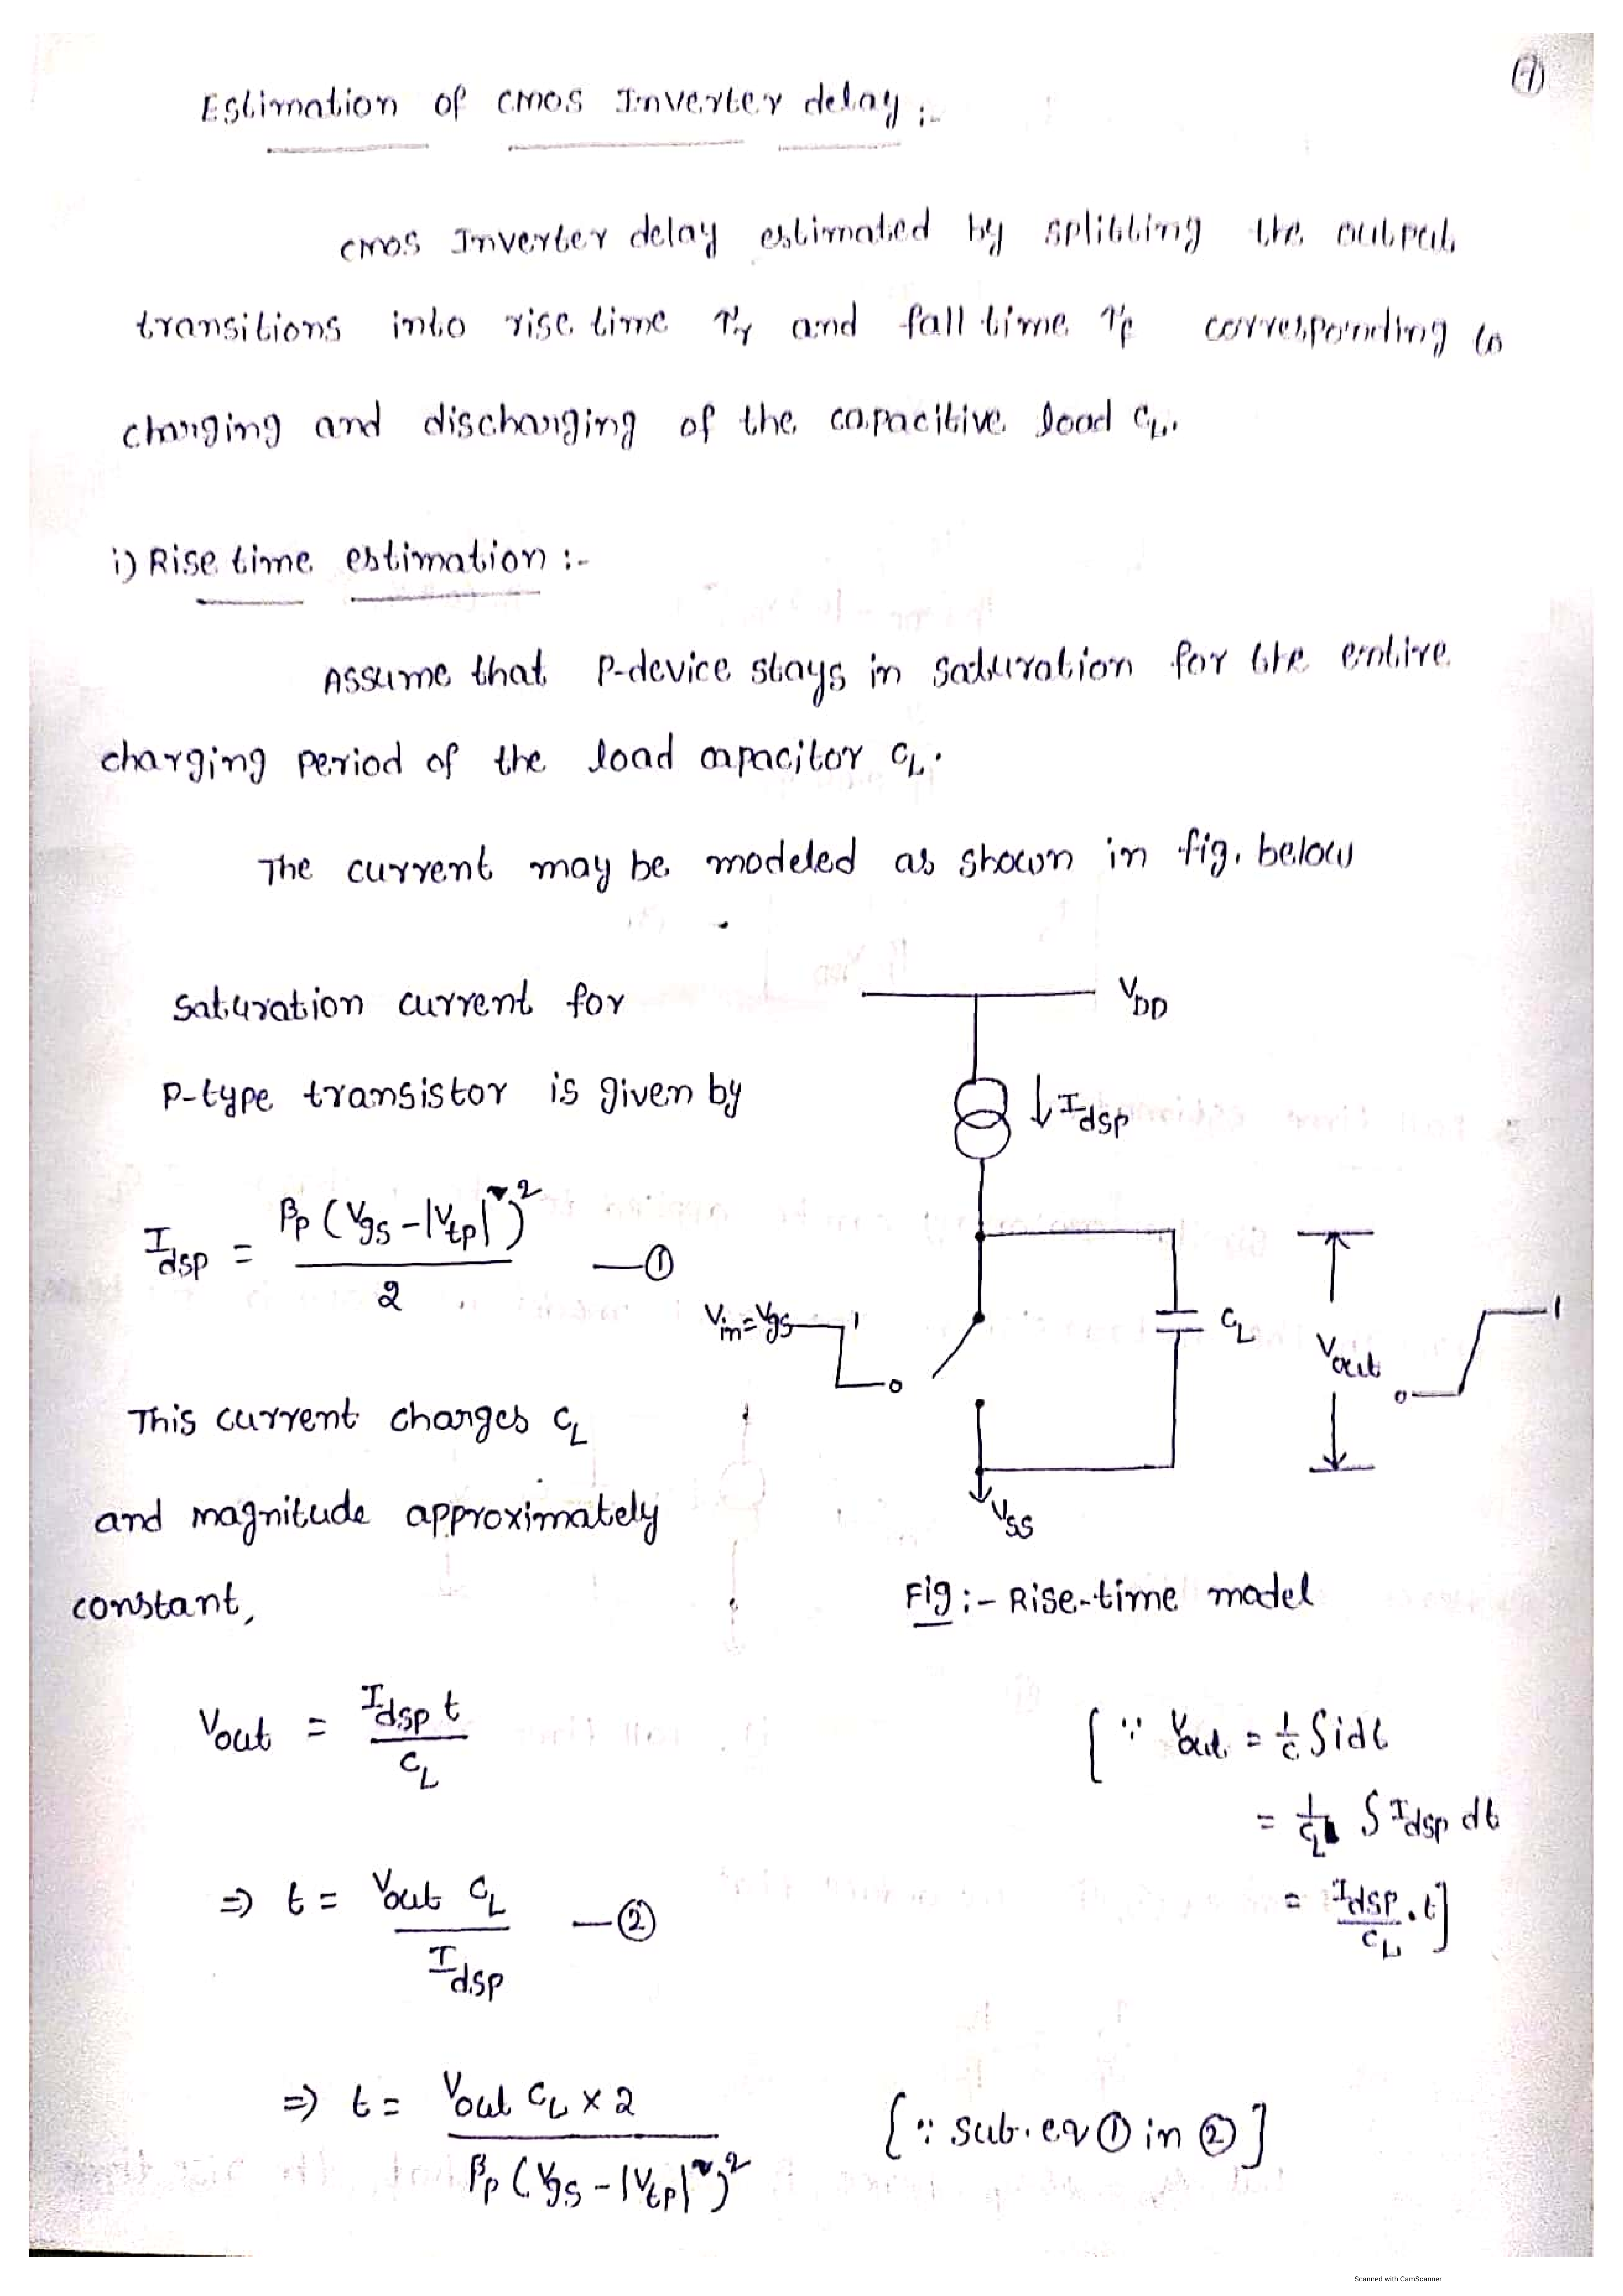 (7)
Estimation of CMOS Inverter delay :-
CMOS Inverter delay estimated by splitting the output
transitions into rise time τr and fall time τf corresponding to
charging and discharging of the capacitive load CL.
i) Rise time estimation :-
Assume that P-device stays in saturation for the entire
charging period of the load capacitor CL.
The current may be modeled as shown in fig. below
Saturation current for
P-type transistor is given by
Idsp = βp (Vgs - |Vtp|)² / 2 — ①
This current changes CL
and magnitude approximately
constant,
VDD
↓ Idsp
Vin = Vgs
1
0
CL
Vout
0
1
VSS
Fig :- Rise-time model
Vout = Idsp t / CL
[ ∵ Vout = 1/C ∫ i dt
= 1/CL ∫ Idsp dt
= Idsp/CL . t ]
⇒ t = Vout CL / Idsp — ②
⇒ t = Vout CL × 2 / βp (Vgs - |Vtp|)²
[ ∵ sub. eq ① in ② ]
Scanned with CamScanner